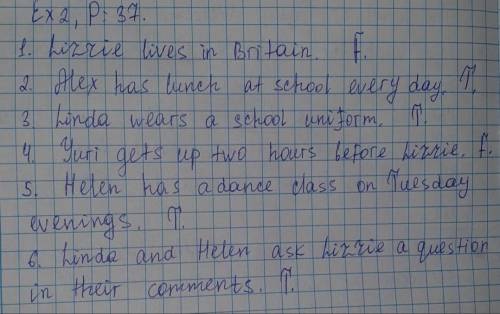 Ex 2, P: 37.
1. Lizzie lives in Britain. F.
2. Alex has lunch at school every day. T.
3. Linda wears a school uniform. T.
4. Yuri gets up two hours before Lizzie. F.
5. Helen has a dance class on Tuesday
evenings. T.
6. Linda and Helen ask Lizzie a question
in their comments. T.